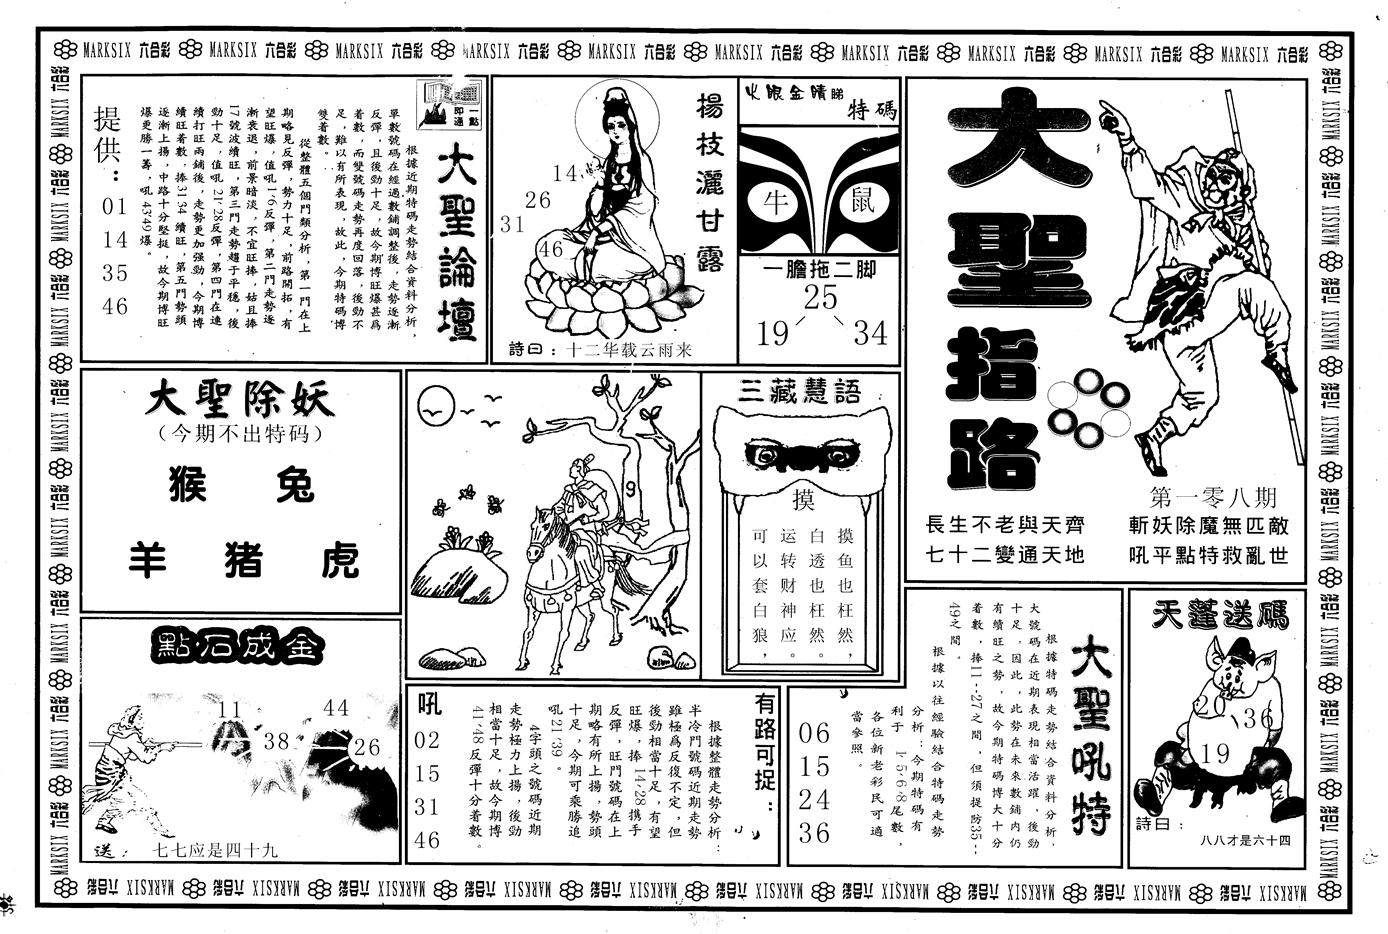 MARKSIX 六合彩 MARKSIX 六合彩 MARKSIX 六合彩 MARKSIX 六合彩 MARKSIX 六合彩 MARKSIX 六合彩 MARKSIX 六合彩 MARKSIX 六合彩 MARKSIX 六合彩 MARKSIX 六合彩
大聖指路
第一零八期
長生不老與天齊
七十二變通天地
斬妖除魔無匹敵
吼平點特救亂世
火眼金睛睇
特碼
牛
鼠
一膽拖二脚
25
19
34
揚枝灑甘露
14
26
31
46
詩曰：十二华载云雨来
一點即通
大聖論壇
根據近期特碼走勢結合資料分析，
單數號碼在經過數鋪調整後，走勢逐漸
反彈，且後勁十足，故今期博旺爆甚爲
着數，而雙號碼走勢再度回落，後勁不
足，難以有所表現，故此，今期特碼博
雙着數。
從整體五個門類分析，第一門在上
期略見反彈，勢力十足，前路開拓，有
望旺爆，值吼1·6反彈，第二門走勢逐
漸衰退，前景暗淡，不宜旺捧，姑且捧
17號波續旺，第三門走勢趨于平穩，後
勁十足，值吼21·28反彈，第四門在連
續打旺兩鋪後，走勢更加强勁，今期博
續旺着數，捧31·34續旺，第五門勢頭
逐漸上揚，中路十分堅挺，故今期博旺
爆更勝一籌，吼43·49爆。
提供：
01
14
35
46
大聖除妖
（今期不出特码）
猴 兔
羊 猪 虎
9
三藏慧語
摸
摸鱼也枉然，
白透也枉然。
运转财神应。
可以套白狼，
點石成金
11
44
38
26
送： 七七应是四十九
有路可捉：
根據整體走勢分析：
半冷門號碼近期走勢
雖極爲反復不定，但
後勁相當十足，有望
旺爆，捧14·28携手
反彈，旺門號碼在上
期略有所上揚，勢頭
十足，今期可乘勝追
吼21·39。
4字頭之號碼近期
走勢極力上揚，後勁
相當十足，故今期博
41·48反彈十分着數。
吼
02
15
31
46
大聖吼特
根據特碼走勢結合資料分析，
大號碼在近期表現相當活躍，後勁
十足，因此，此勢在未來數鋪内仍
有續旺之勢，故今期特碼博大十分
着數，捧11--27之間，但須提防35--
49之間。
根據以往經驗結合特碼走勢
分析：今期特碼有
利于1·5·6·8尾數，
各位新老彩民可適
當參照。
06
15
24
36
天蓬送碼
20
36
19
詩曰：
八八才是六十四
MARKSIX 六合彩 MARKSIX 六合彩 MARKSIX 六合彩 MARKSIX 六合彩 MARKSIX 六合彩 MARKSIX 六合彩 MARKSIX 六合彩 MARKSIX 六合彩 MARKSIX 六合彩 MARKSIX 六合彩